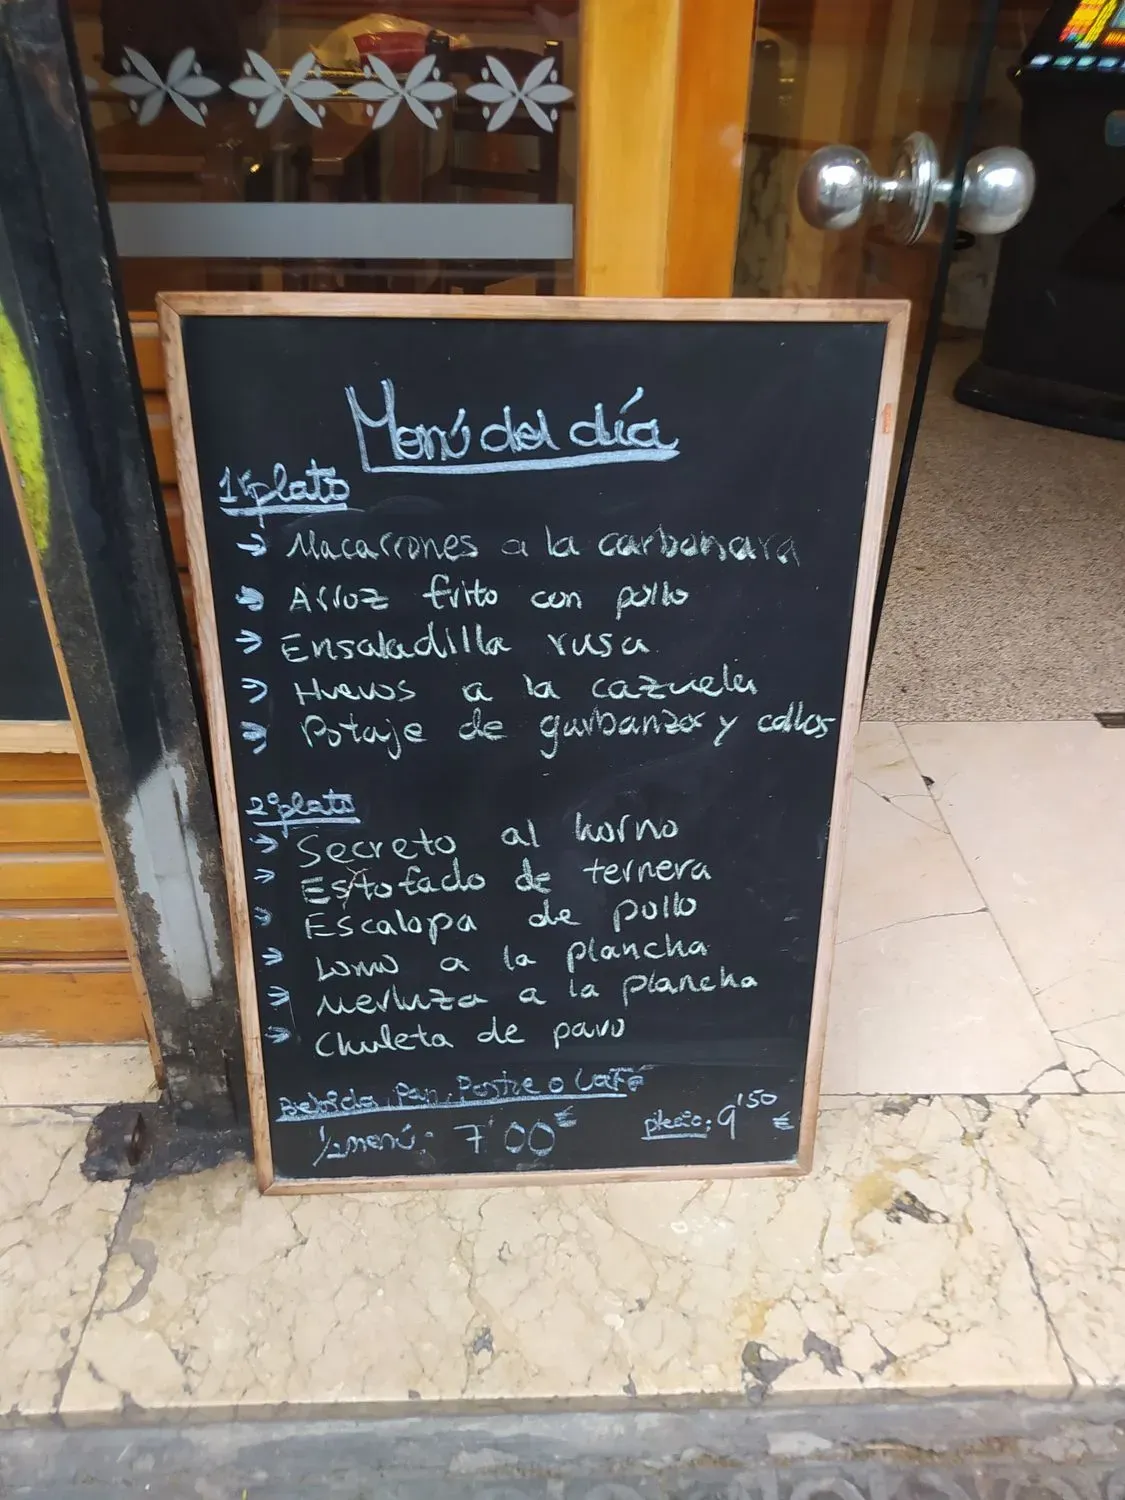 Menú del día
1r plato
→ Macarrones a la carbonara
→ Arroz frito con pollo
→ Ensaladilla rusa
→ Huevos a la cazuela
→ Potaje de garbanzos y callos
2º plato
→ Secreto al horno
→ Estofado de ternera
→ Escalopa de pollo
→ Lomo a la plancha
→ Merluza a la plancha
→ Chuleta de pavo
Bebida, Pan, Postre o Café
½ menú: 7'00€ precio: 9'50€